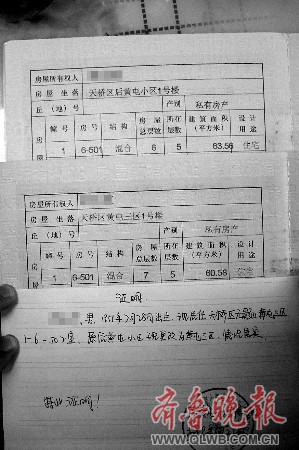 房屋所有权人
房屋 坐落 天桥区后黄屯小区1号楼
丘（地）号 产别 私有房产
幢号 房号 结构 房屋总层数 所在层数 建筑面积（平方米） 设计用途
1 6-501 混合 6 5 63.56 住宅
房屋所有权人
房屋 坐落 天桥区黄屯三区1号楼
丘（地）号 产别 私有房产
幢号 房号 结构 房屋总层数 所在层数 建筑面积（平方米） 设计用途
1 6-501 混合 7 5 60.58 住宅
证明
男，195 年2月28日出生，现居住天桥区 黄屯三区
1-6-502室，原 黄屯小区现更改为黄屯三区，情况属实。
特此证明！
齐鲁晚报
WWW.QLWB.COM.CN